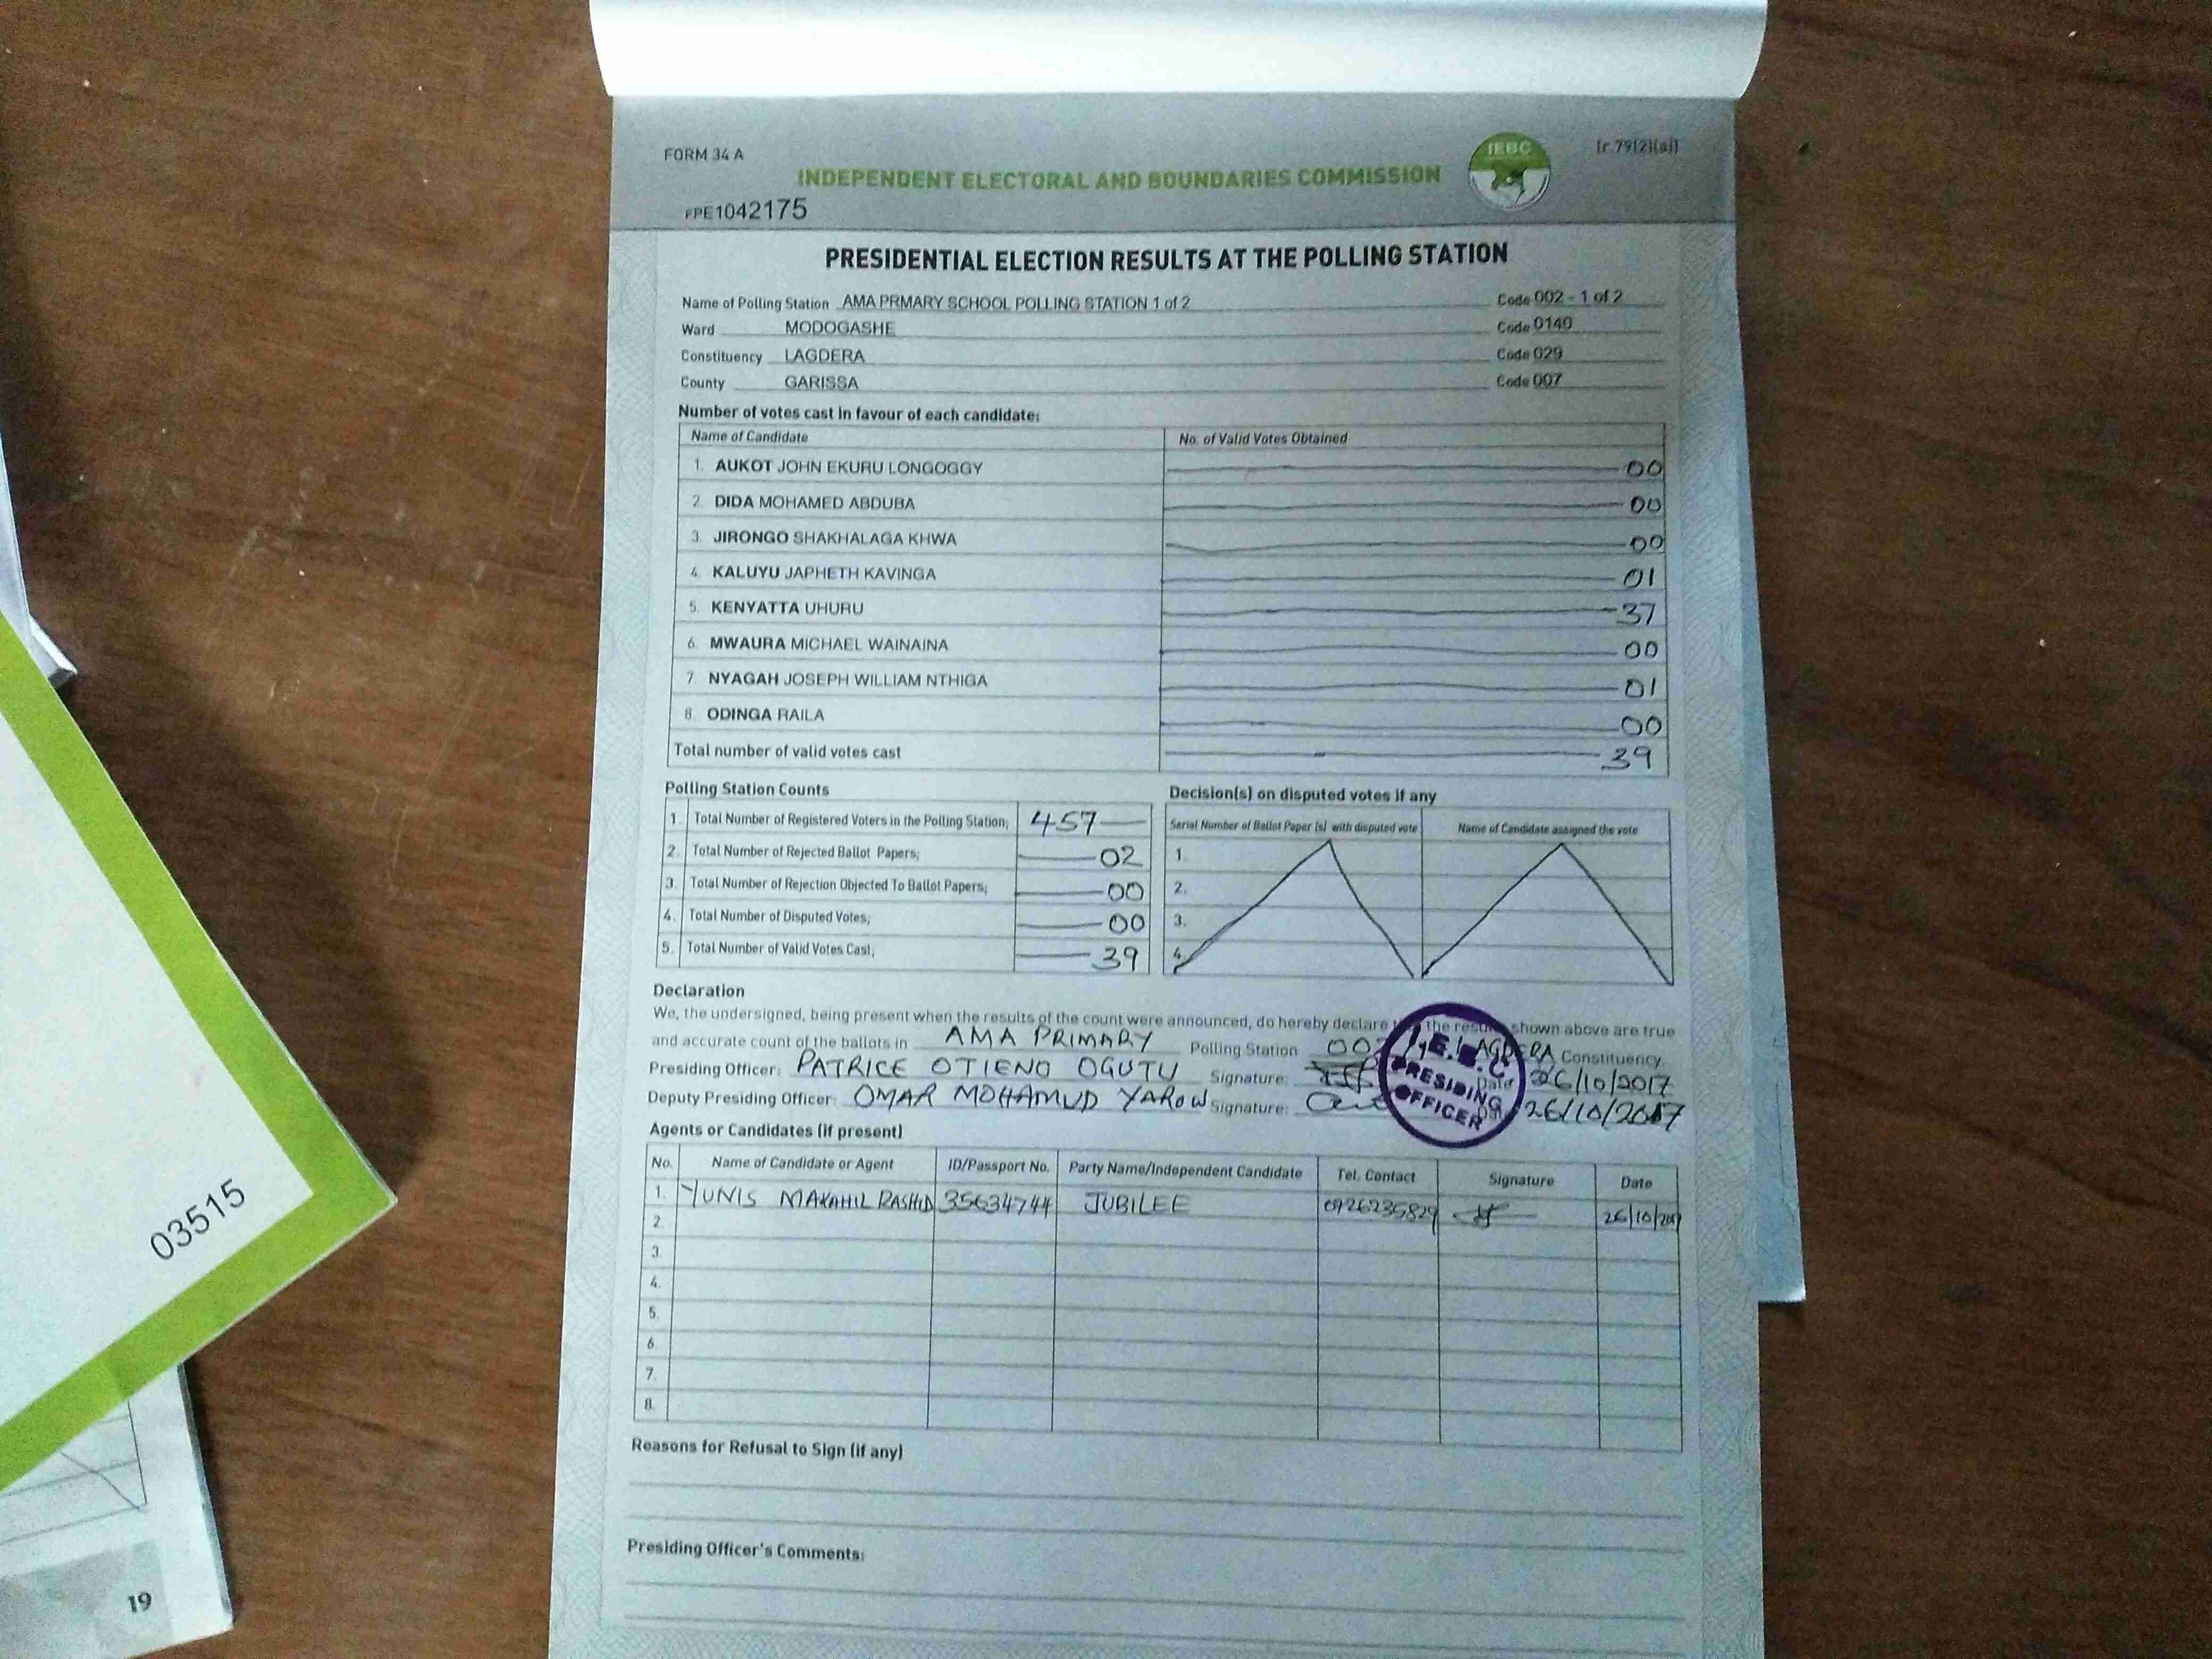 FORM 34 A
INDEPENDENT ELECTORAL AND BOUNDARIES COMMISSION
IEBC
FPE1042175
PRESIDENTIAL ELECTION RESULTS AT THE POLLING STATION
Name of Polling Station AMA PRMARY SCHOOL POLLING STATION 1 of 2 Code 002 - 1 of 2
Ward MODOGASHE Code 0140
Constituency LAGDERA Code 029
County GARISSA Code 007
Number of votes cast in favour of each candidate:
Name of Candidate No. of Valid Votes Obtained
1. AUKOT JOHN EKURU LONGOGGY 00
2. DIDA MOHAMED ABDUBA 00
3. JIRONGO SHAKHALAGA KHWA 00
4. KALUYU JAPHETH KAVINGA 01
5. KENYATTA UHURU 37
6. MWAURA MICHAEL WAINAINA 00
7. NYAGAH JOSEPH WILLIAM NTHIGA 01
8. ODINGA RAILA 00
Total number of valid votes cast 39
Polling Station Counts
1. Total Number of Registered Voters in the Polling Station; 457
2. Total Number of Rejected Ballot Papers; 02
3. Total Number of Rejection Objected To Ballot Papers; 00
4. Total Number of Disputed Votes; 00
5. Total Number of Valid Votes Cast; 39
Decision(s) on disputed votes if any
Serial Number of Ballot Paper (s) with disputed vote Name of Candidate assigned the vote
1.
2.
3.
4.
Declaration
We, the undersigned, being present when the results of the count were announced, do hereby declare the shown above are true
and accurate count of the ballots in AMA PRIMARY Polling Station Constituency.
Presiding Officer: PATRICE OTIENO OGUTU Signature: Date 26/10/2017
Deputy Presiding Officer: OMAR MOHAMUD YAROW Signature: 26/10/2017
I.E.B.C
PRESIDING
OFFICER
Agents or Candidates (if present)
No. Name of Candidate or Agent ID/Passport No. Party Name/Independent Candidate Tel. Contact Signature Date
1. YUNIS MAKAHIL RASHID 35634744 JUBILEE 0726235829 26/10/2017
2.
3.
4.
5.
6.
7.
8.
Reasons for Refusal to Sign (if any)
Presiding Officer's Comments:
03515
19